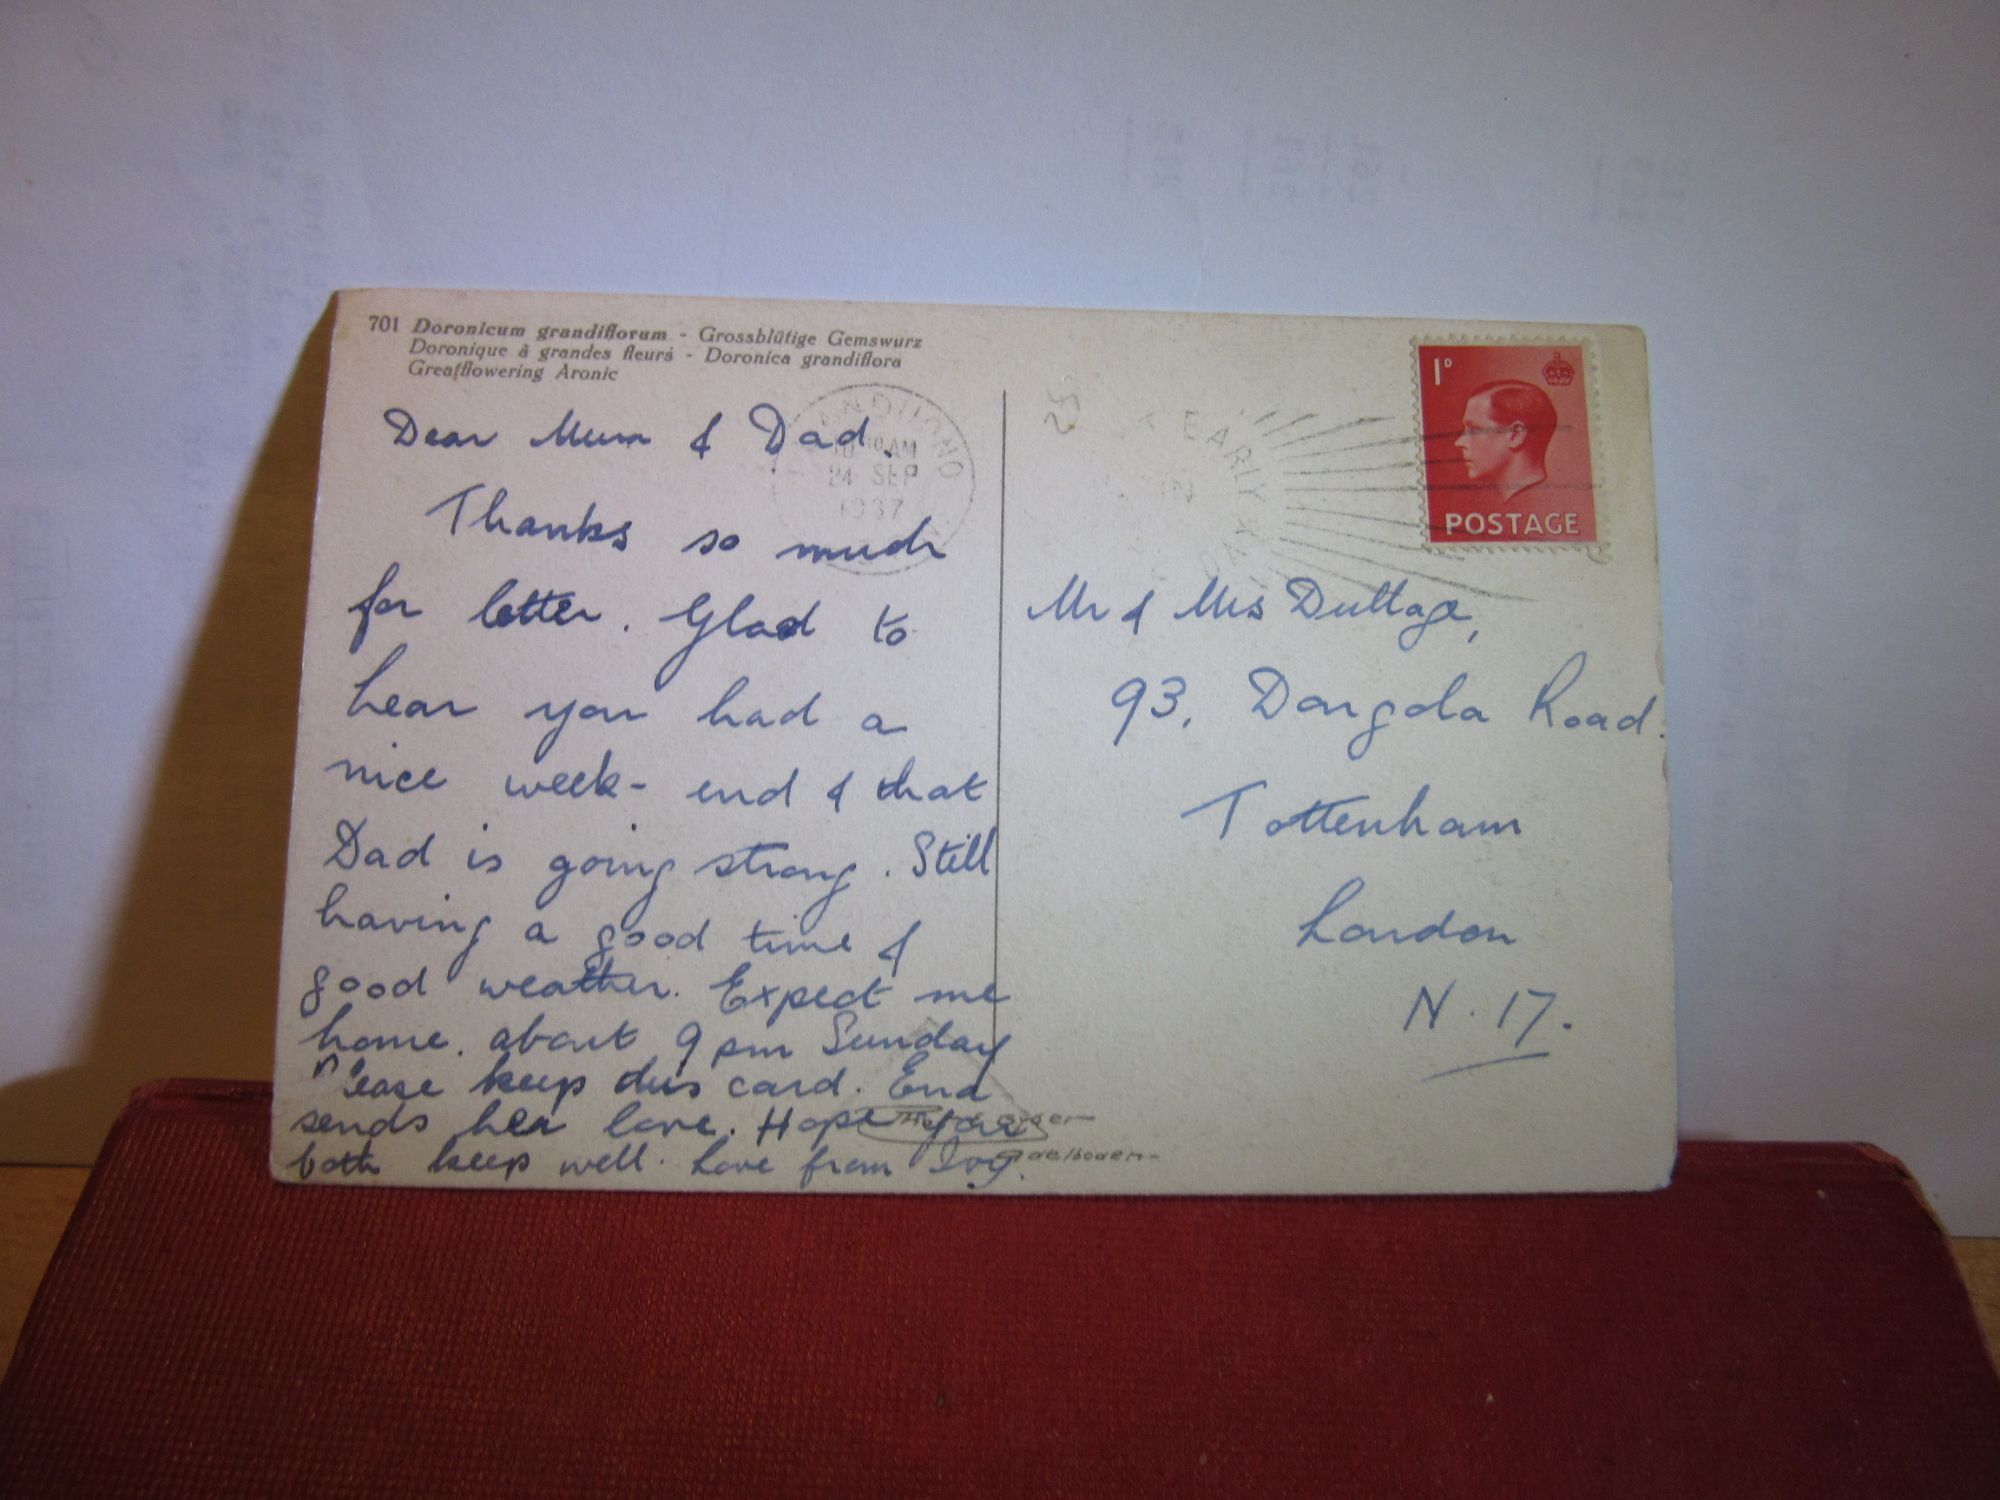 701 Doronicum grandiflorum - Grossblütige Gemswurz
Doronique à grandes fleurs - Doronica grandiflora
Greatflowering Aronic
Dear Mum & Dad,
Thanks so much
for letter. Glad to
hear you had a
nice week-end & that
Dad is going strong. Still
having a good time &
good weather. Expect me
home. about 9 pm Sunday
Please keep this card. Ena
sends her love. Hope you
both keep well. Love from Ivy.
10 AM
24 SEP
1937
25
EARLY
IN
DAY
1D
POSTAGE
Mr & Mrs Duttage,
93, Dongola Road.
Tottenham
London
N. 17.